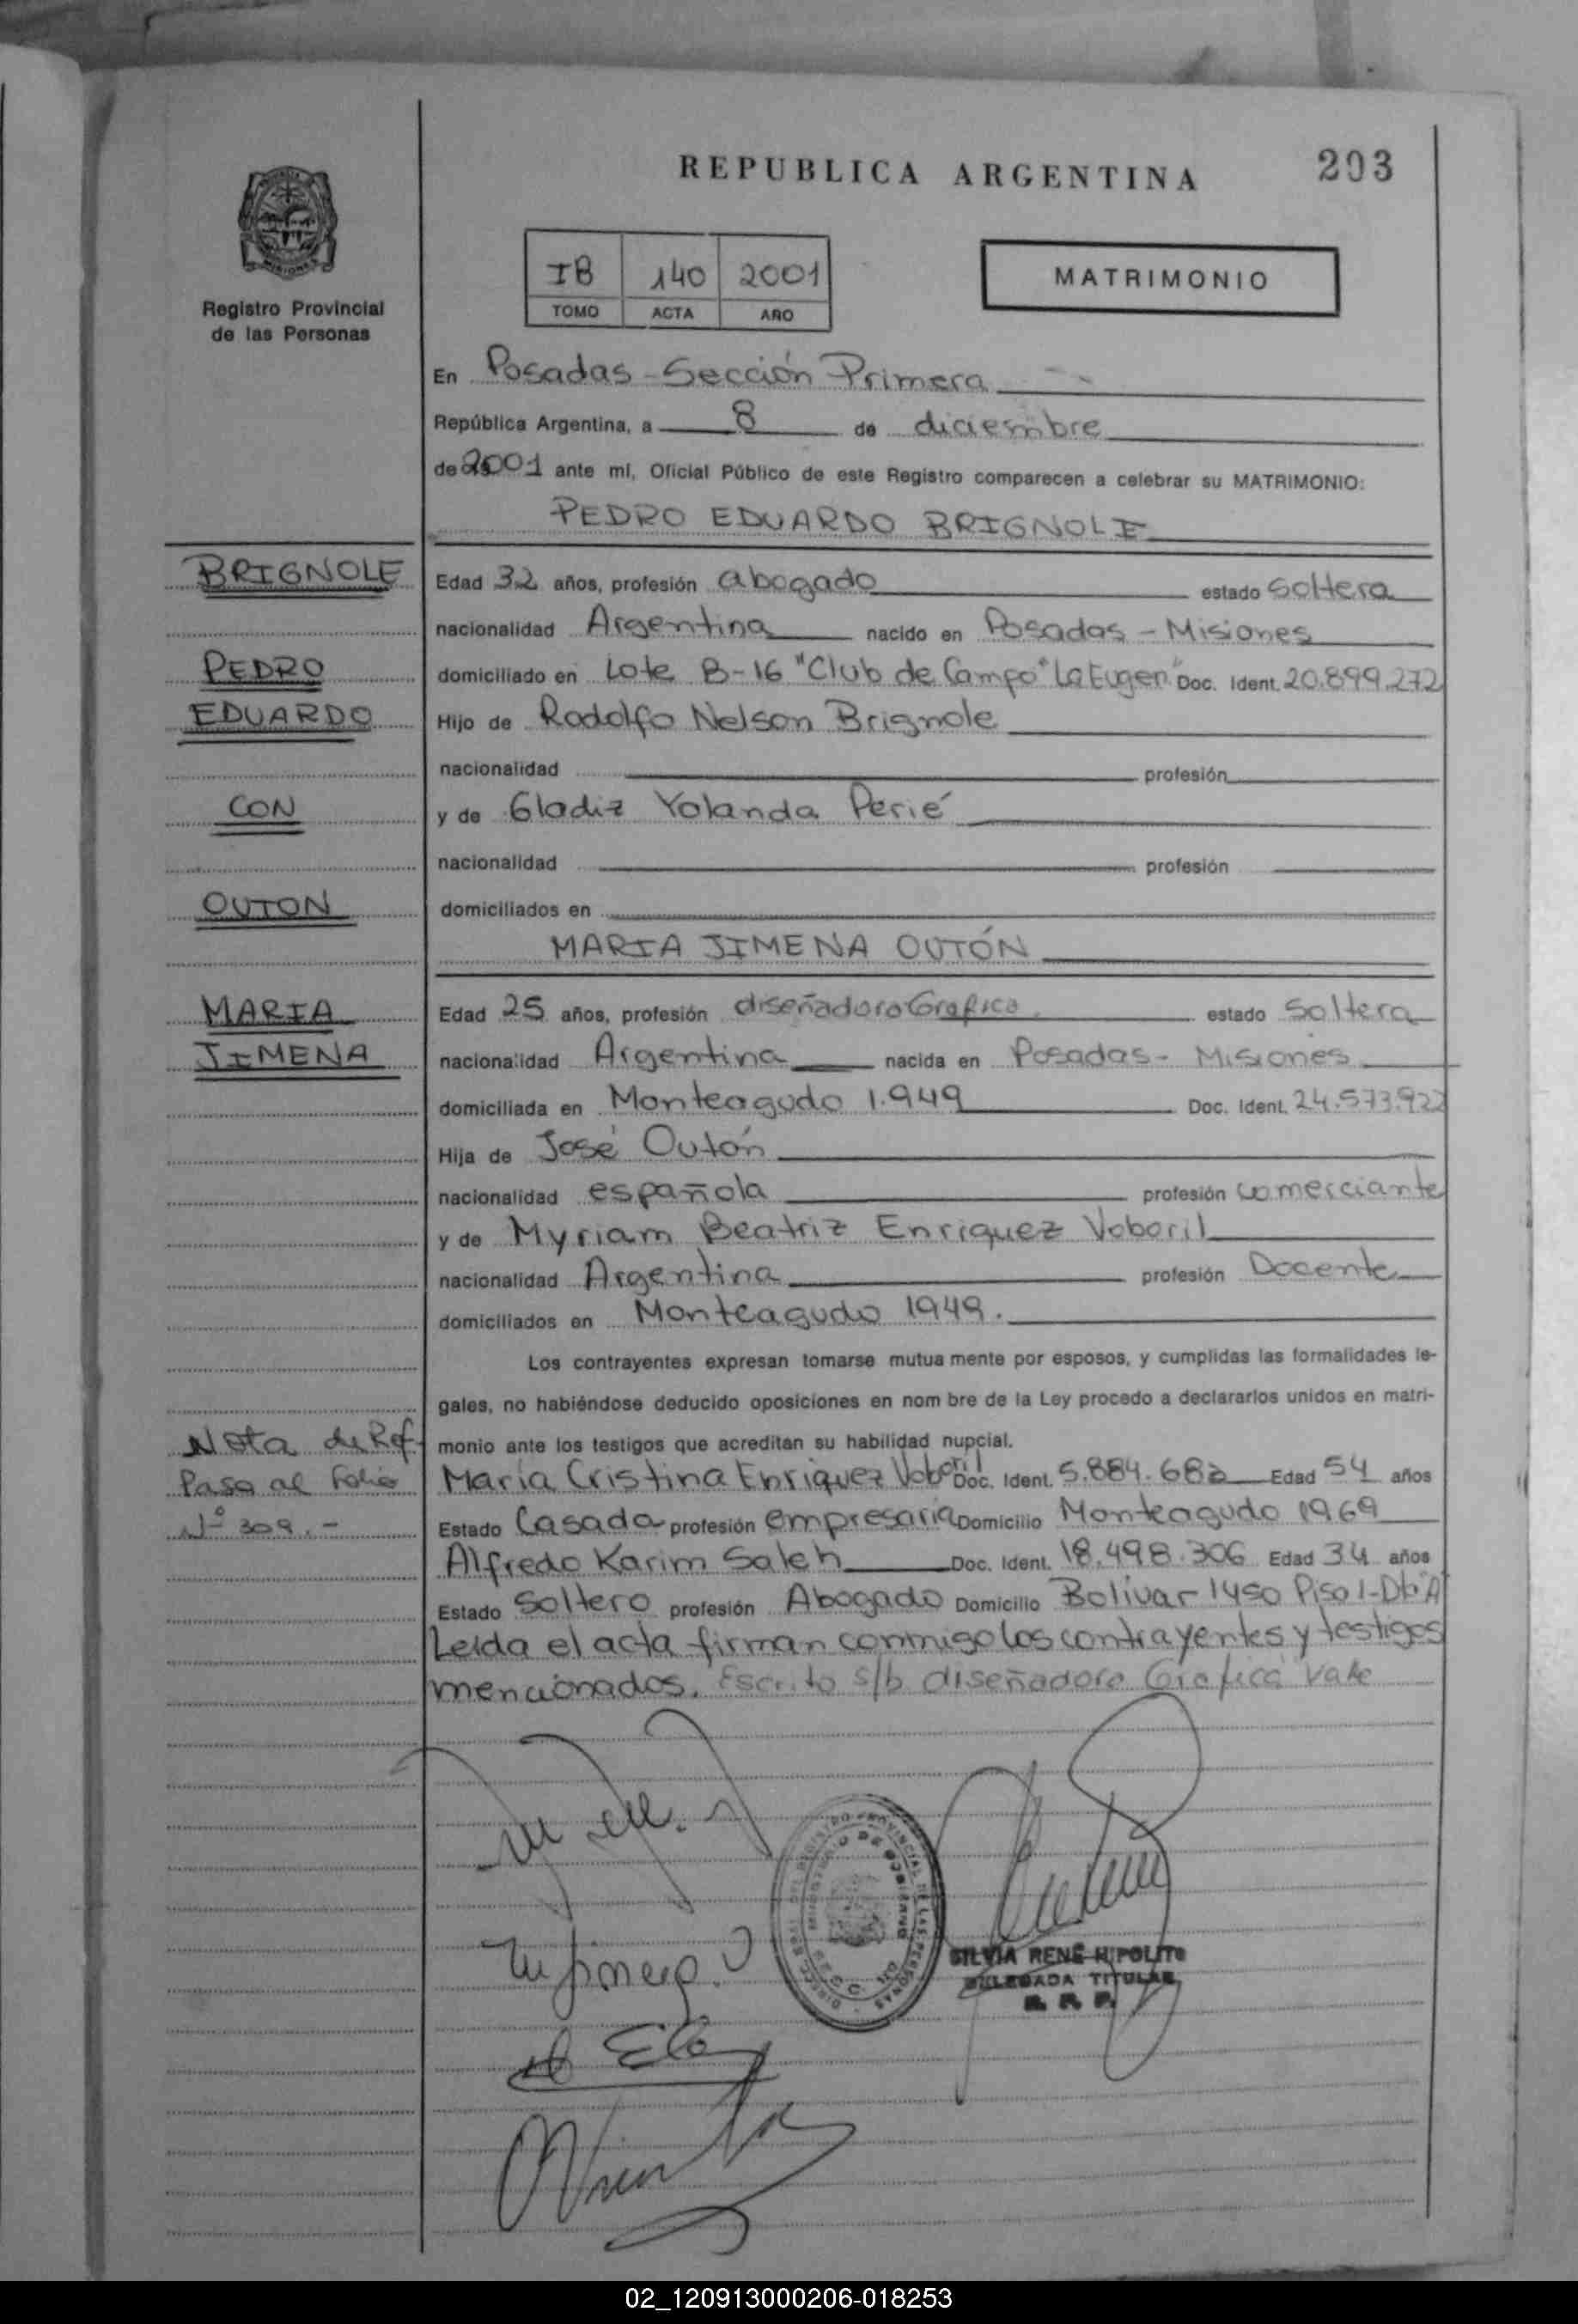 REPUBLICA ARGENTINA
203
Registro Provincial
de las Personas
IB 140 2001
TOMO ACTA AÑO
MATRIMONIO
En Posadas - Sección Primera
República Argentina, a 8 de diciembre
de 2001 ante mí, Oficial Público de este Registro comparecen a celebrar su MATRIMONIO:
PEDRO EDUARDO BRIGNOLE
BRIGNOLE
PEDRO
EDUARDO
CON
OUTON
MARIA
JIMENA
Edad 32 años, profesión abogado estado Soltera
nacionalidad Argentina nacido en Posadas - Misiones
domiciliado en Lote B-16 "Club de Campo" La Eugen" Doc. Ident. 20.899.272
Hijo de Rodolfo Nelson Brignole
nacionalidad profesión
y de Gladiz Yolanda Perié
nacionalidad profesión
domiciliados en
MARIA JIMENA OUTÓN
Edad 25 años, profesión diseñadora Grafica estado Soltera
nacionalidad Argentina nacida en Posadas - Misiones
domiciliada en Monteagudo 1.949 Doc. Ident. 24.573.922
Hija de José Outón
nacionalidad española profesión comerciante
y de Myriam Beatriz Enriquez Voboril
nacionalidad Argentina profesión Docente
domiciliados en Monteagudo 1949.
Los contrayentes expresan tomarse mutua mente por esposos, y cumplidas las formalidades le-
gales, no habiéndose deducido oposiciones en nom bre de la Ley procedo a declararlos unidos en matri-
monio ante los testigos que acreditan su habilidad nupcial.
Nota de Ref.
Pasa al Folio
Nº 309.-
María Cristina Enriquez Voboril Doc. Ident. 5.884.682 Edad 54 años
Estado Casada profesión empresaria Domicilio Monteagudo 1969
Alfredo Karim Saleh Doc. Ident. 18.498.306 Edad 34 años
Estado Soltero profesión Abogado Domicilio Bolivar 1450 Piso 1-Dto "A"
Leída el acta firman conmigo los contrayentes y testigos
mencionados. Escrito s/b diseñadora Grafica Vale
SILVIA RENÉ HIPOLITO
DELEGADA TITULAR
R. P. P.
02_120913000206-018253